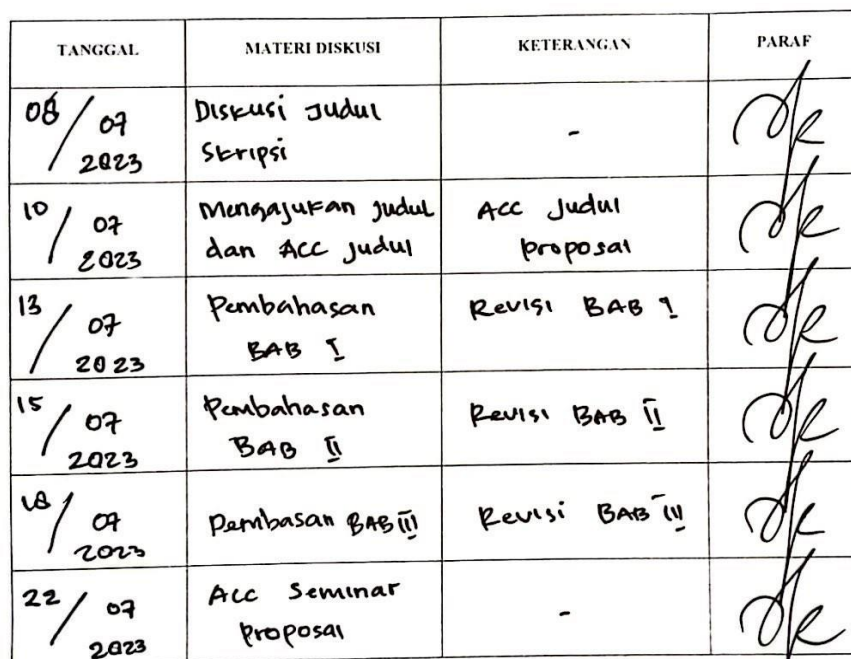 TANGGAL MATERI DISKUSI KETERANGAN PARAF
08/07 2023 Diskusi Judul Skripsi -
10/07 2023 Mengajukan Judul dan ACC Judul ACC Judul proposal
13/07 2023 Pembahasan BAB I Revisi BAB I
15/07 2023 Pembahasan BAB II Revisi BAB II
18/07 2023 Pembasan BAB III Revisi BAB III
22/07 2023 ACC Seminar Proposal -